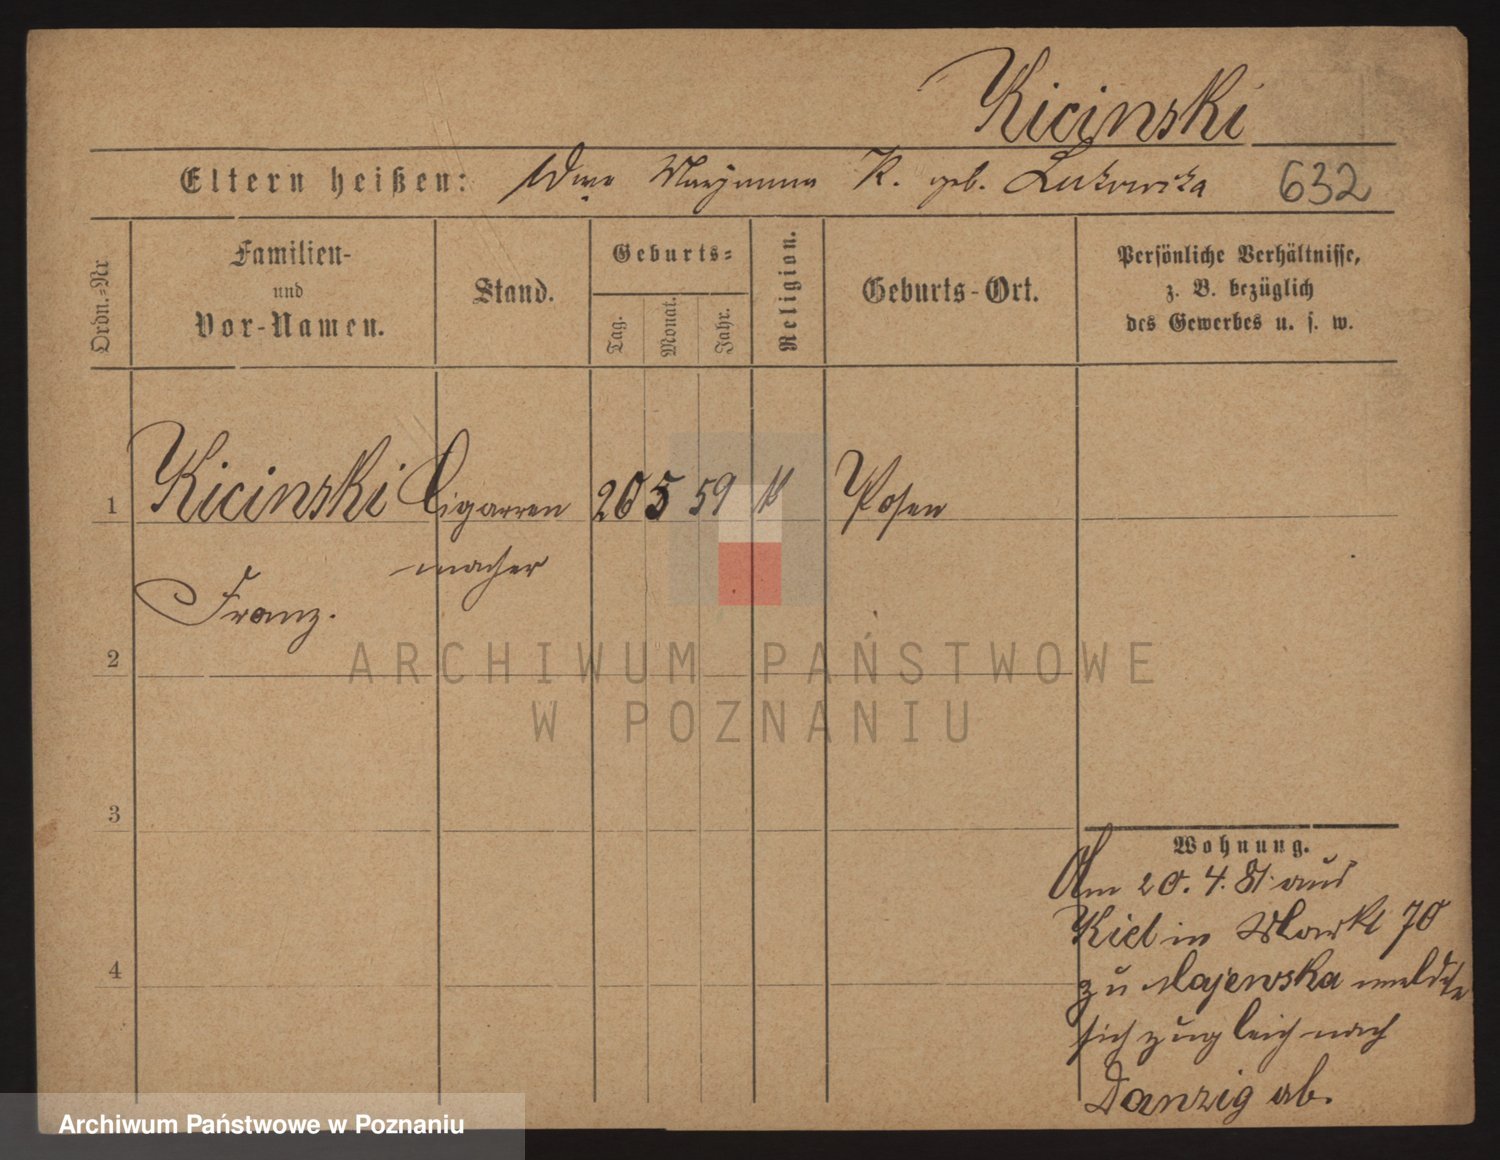 Kicinski
Eltern heißen: Wwe Maryanna K. geb. Lukowska 632
Ordn.=Nr
Familien-
und
Vor-Namen.
Stand.
Geburts=
Tag.
Monat.
Jahr.
Religion.
Geburts-Ort.
Persönliche Verhältnisse,
z. B. bezüglich
des Gewerbes u. s. w.
1 Kicinski Cigarren 20 5 59 k Posen
macher
Franz.
2
ARCHIWUM PAŃSTWOWE
W POZNANIU
3
4
Wohnung.
Am 20. 4. 81. aus
Kiel in Markt 70
zu Majewska meldete
sich zugleich nach
Danzig ab.
Archiwum Państwowe w Poznaniu